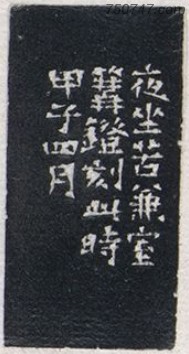 750717.com
夜坐苦兼室
篝鐙刻此時
甲子四月